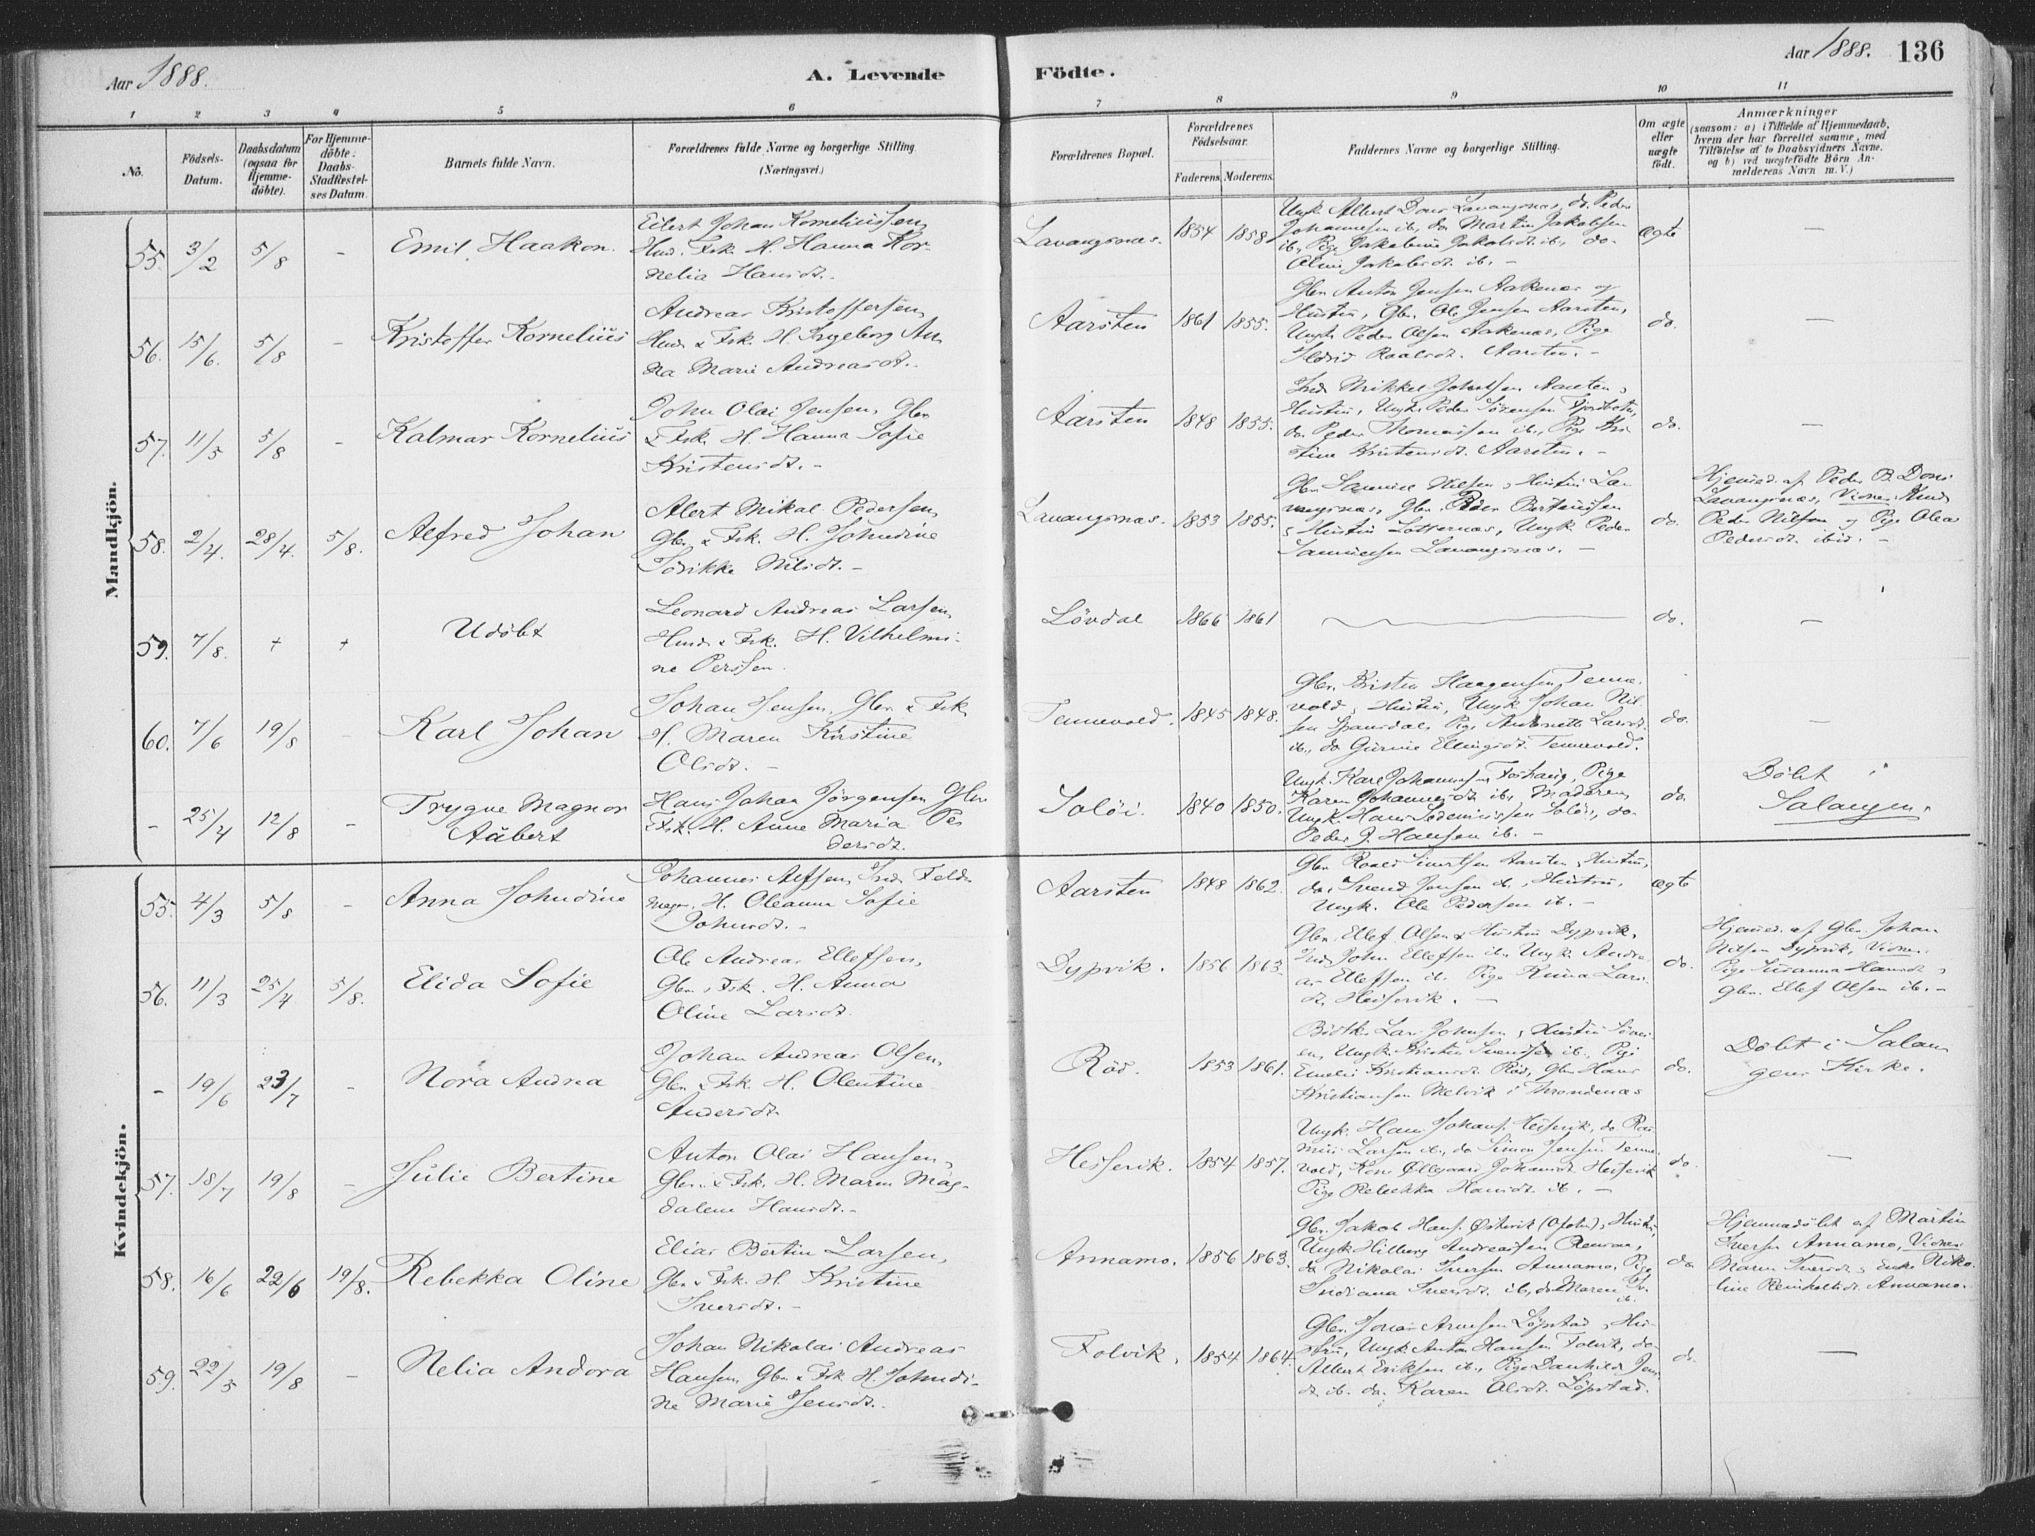 Aar 1888.
A. Levende Födte.
Aar 1888. 136
1 2 3 4 5 6 7 8 9 10 11
No.
Födsels-Datum.
Daabsdatum (ogsaa for Hjemme-döbte).
For Hjemme-döbte: Daabs-Stadfæstel-ses Datum.
Barnets fulde Navn.
Forældrenes fulde Navne og borgerlige Stilling.
(Næringsvei.)
Forældrenes Bopæl.
Forældrenes Födselsaar.
Faderens. Moderens.
Faddernes Navne og borgerlige Stilling.
Om ægte eller uægte födt.
Anmærkninger
(saasom: a) i Tilfælde af Hjemmedaab,
hvem der har forrettet samme, med
Tilföielse af to Daabsvidners Navne,
og b) ved uegtefödte Börn An-
melderens Navn m. V.)
Mandkjön.
55. 3/2 5/8 - Emil Haakon.
Eilert Johan Korneliussen,
Hmd. Fsk. H. Hanna Kor-
nelia Hansdt.-
Lavangsnæs. 1854 1858
Ungk. Albert Dons Lavangsnæs, do. Peder
Johannesen ib., do Martin Jakobsen
ib., Pige Jakobine Jakobsdt. ib., do.
Oline Jakobsdt. ib. -
ægte -
56. 15/6 5/8 - Kristoffer Kornelius
Andreas Kristoffersen,
Hmd. & Fsk. H. Ingeborg An-
na Marie Andreasdt.
Aarsten 1861 1855.
Gbr. Anton Jensen Aakenes og
Hustru, Gbr. Ole Jensen Aarsten,
Ungk. Peder Olsen Aakenæs, Pige
Roaldsdt. Aarsten. -
do. -
57. 11/5 5/8 - Kalmar Kornelius
John Olai Jensen, Gbr.
& Fsk. H. Hanna Sofie
Kristensdt. -
Aarsten 1848 1855.
Inds. Mikkel Johnsen Aarsten,
Hustru, Ungk. Peder Sörensen Fjordbotn,
do. Peder Thomassen ib., Pige Kri-
stine Kristensdt. Aarsten. -
do. -
58. 2/4. 28/4. 5/8. Alfred Johan
Alert Mikal Pedersen,
Gbr. & Fsk. H. Johndine
Fredrikke Nilsdt. -
Lavangsnæs. 1853 1855.
Gbr. Nilsen & Hustru La-
vangsnæs, Gbr. Peder Berteussen
& Hustru, Ungk. Peder
Samuelsen Lavangsnæs. -
do.
Hjemmed. af Peder B. Dons
Lavangsnæs, Vidner
Peder Nilsen og Pige Olea
Pedersdt. ibid. -
59. 7/8. + + Udöbt
Leonard Andreas Larsen,
Hmd. & Fsk. H. Vilhelmi-
ne Perssen.
Lövdal 1866 1861
do. -
60. 7/6 19/8 - Karl Johan
Johan Jensen, Gbr. & Fsk.
H. Maren Kirstine
Olsdt. -
Tennevold. 1845 1848.
Gbr. Kristen Haagensen Tenne-
vold, Hustru, Ungk. Johan Nil-
sen Spansdal, Pige Antonette Larsdt.
ib., do Gurine Ellingsdt. Tennevold.
do. -
- 25/4 12/8 - Trygve Magnor
Aubert
Hans Johan Jörgensen Gbr.
Fsk. H. Anne Maria Pe-
dersdt.
Solöi. 1840 1850.
Ungk. Karl Johannesen Foshaug, Pige
Karen Johannesdt. ib., Moderen,
Ungk. Hans Sörenussen Solöi, do.
Peder J. Hansen ib. -
do.
Döbt i
Salangen.
Kvindekjön.
55. 4/3 5/8 - Anna Johndine
Johannes Alfsen, Inds. Feld-
mager, H. Oleanna Sofie
Johnsdt. -
Aarsten 1848 1862.
Gbr. Roald Sivertsen Aarsten, Hustru,
do. Svend Jensen ib., Hustru,
Ungk. Ole Pedersen ib. -
ægte
56. 11/3 25/4 5/8. Elida Sofie
Ole Andreas Ellefsen,
Gbr. & Fsk. H. Anna
Oline Larsdt.
Dypvik. 1856 1863.
Gbr. Ellef Olsen & Hustru Dypvik,
Inds. John Ellefsen ib., Ungk. Andre-
as Ellefsen ib. Pige Lars-
dt. Hesservik. -
do.
Hjemmed. af Gbr. Johan
Nilsen Dypvik, Vidner
Pige Susanna Hansdt. &
Gbr. Ellef Olsen ib. -
- 19/6 23/7 - Nora Andrea
Johan Andreas Olsen,
Gbr. & Fsk. H. Olentine
Andersdt.
Röd. 1853 1861.
Lars Johnsen, Hustru
Ungk. Kristen Svendsen ib., Pige
Emelie Kristiansdt. Röd, Gbr. Hans
Kristiansen Melvik i Throndenæs
do.
Döbt i Salan-
gens Kirke.
57. 18/7 19/8 - Julie Bertine
Anton Olai Hansen,
Gbr. & Fsk. H. Maren Mag-
dalene Hansdt. -
Hesservik. 1854 1857.
Ungk. Hans Johans. Hesservik, do. Ras-
mus Larsen ib., do Simon Jensen Tenne-
vold, Kone Öllegaard Johansdt. Hesservik
Pige Rebekka Hansdt. ib. -
do. -
58. 16/6 22/6 19/8. Rebekka Oline
Elias Bertin Larsen,
Gbr. & Fsk. H. Kristine
Iversdt. -
Annamo. 1856 1863.
Gbr. Jakob Hans. Östervik (Ofoten), Hustru,
Ungk. Hilberg Andreassen
do Nikolai Iversen Annamo, Pige
Indiana Iversdt. ib., do Maren
ib.
do.
Hjemmedöbt af Martin
Iversen Annamo, Vidner
Maren Iversdt. & Enke Niko-
line Reinholtsdt. Annamo.
59. 22/5 19/8 - Nelia Andora
Johan Nikolai Andreas
Hansen, Gbr. & Fsk. H. Johndi-
ne Marie Jensdt. -
Folvik, 1854 1864.
Gbr. Jonas Arnesen Löpstad, Hu-
stru, Ungk. Anton Hansen Folvik, do.
Albert Eriksen ib., Pige Danhild Jens-
dt. ib. do. Karen Olsdt. Löpstad.
do. -